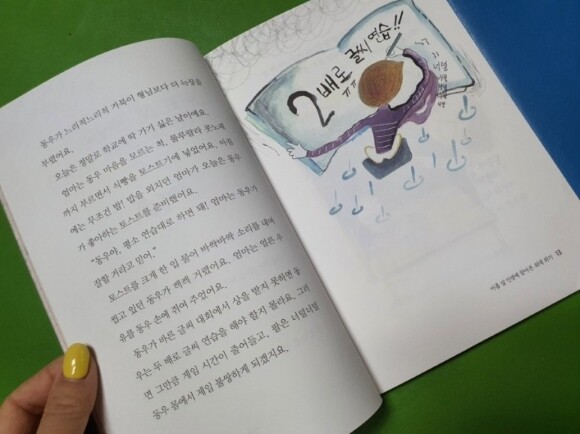 동우가 느리적느리적 거북이 형님보다 더 늑장을
부렸어요.
오늘은 정말로 학교에 딱 가기 싫은 날이에요.
엄마는 동우 마음을 모르는 척, 룰루랄라 콧노래
까지 부르면서 식빵을 토스트기에 넣었어요. 아침
에는 무조건 밥! 밥을 외치던 엄마가 오늘은 동우
가 좋아하는 토스트를 준비했어요.
"동우야, 평소 연습대로 하면 돼! 엄마는 동우가
잘할 거라고 믿어."
토스트를 크게 한 입 물어 바싹바싹 소리를 내며
씹고 있던 동우가 캑캑 거렸어요. 엄마는 얼른 우
유를 동우 손에 쥐어 주었어요.
동우가 바른 글씨 대회에서 상을 받지 못하면 동
우는 두 배로 글씨 연습을 해야 할지 몰라요. 그러
면 그만큼 게임 시간이 줄어들고, 팔은 너덜너덜
동우 몸에서 제일 불쌍하게 되겠지요.
2배로 글씨 연습!!
너덜
13